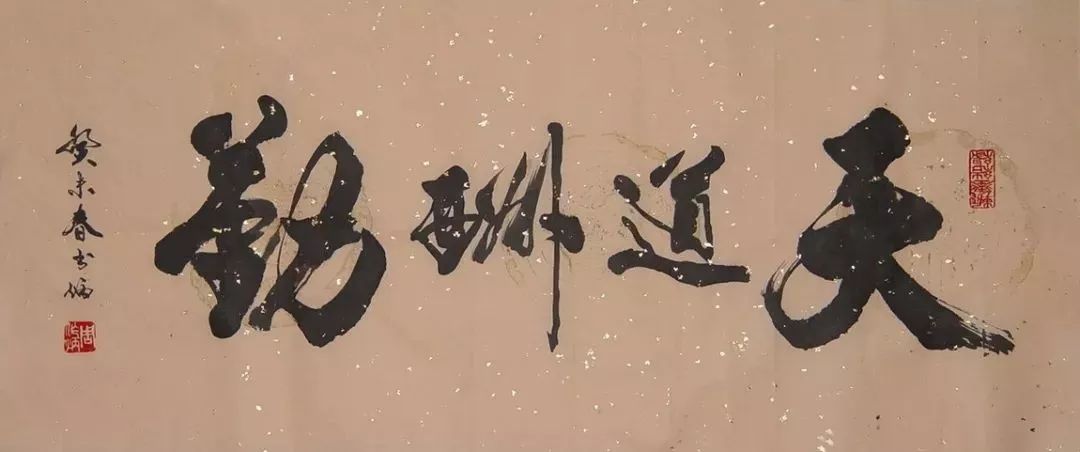 天道酬勤
癸未春书